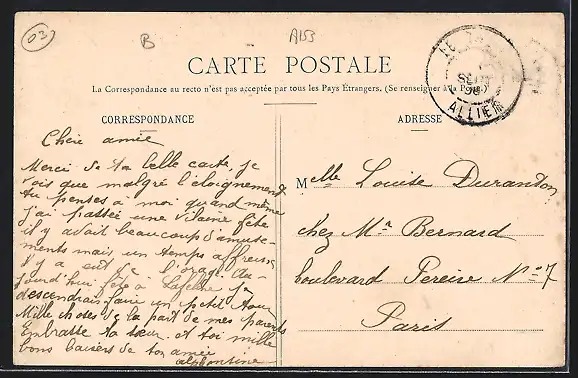 03
B
A153
CARTE POSTALE
La Correspondance au recto n'est pas acceptée par tous les Pays Étrangers. (Se renseigner à la Poste)
CORRESPONDANCE
Chère amie
Merci de ta belle carte je
vois que malgré l'éloignement
tu penses a moi quand même
j'ai passée une vilaine fête
il y avait beaucoup d'amuse-
ments mais un temps affreux
il y a eut de l'orage. Au-
jourd'hui fête à je
descendrais faire un petit tour
Mille choses de la part de mes parents
Embrasse ta sœur et toi mille
bons baisers de ton amie
alphontine
ADRESSE
Melle Louise Duranton
chez Mr Bernard
boulevard Pereire No 7
Paris
SEPT
ALLIER